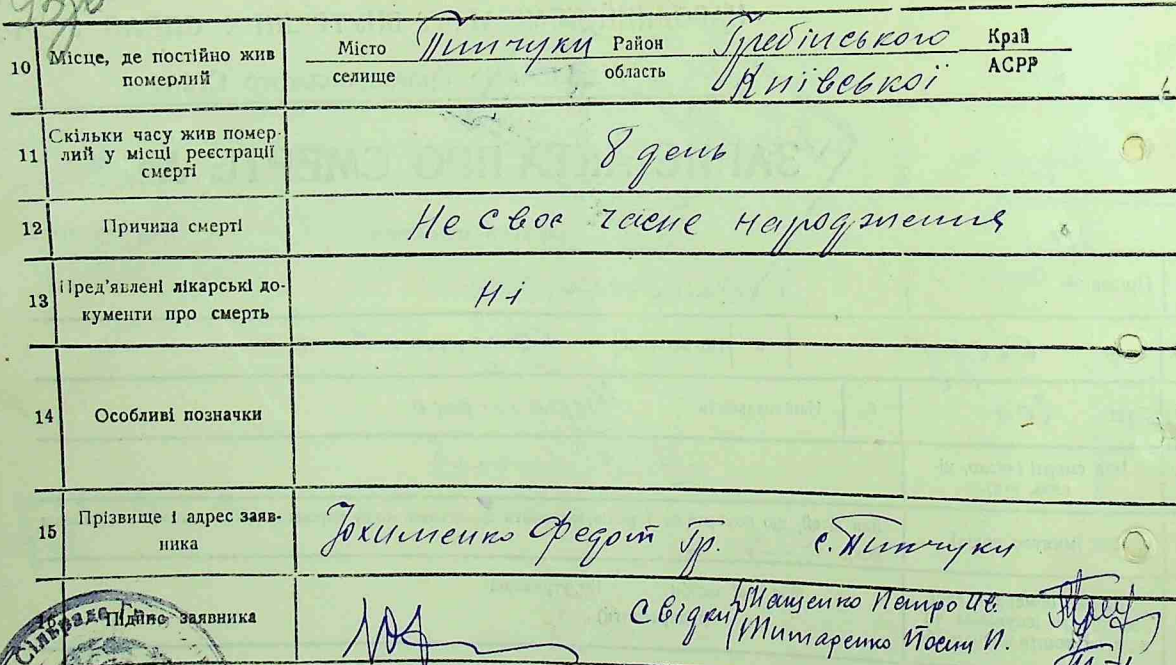 10 Місце, де постійно жив померлий
Місто селище Пинчуки Район область Гребінського Київської Край АСРР
11 Скільки часу жив померлий у місці реєстрації смерті
8 день
12 Причина смерті
Не своє часне народження
13 Пред'явлені лікарські документи про смерть
Ні
14 Особливі позначки
15 Прізвище і адрес заявника
Юхименко Федот Гр. с. Пинчуки
Підпис заявника
Свідки Петро Ив.
Йосип И.